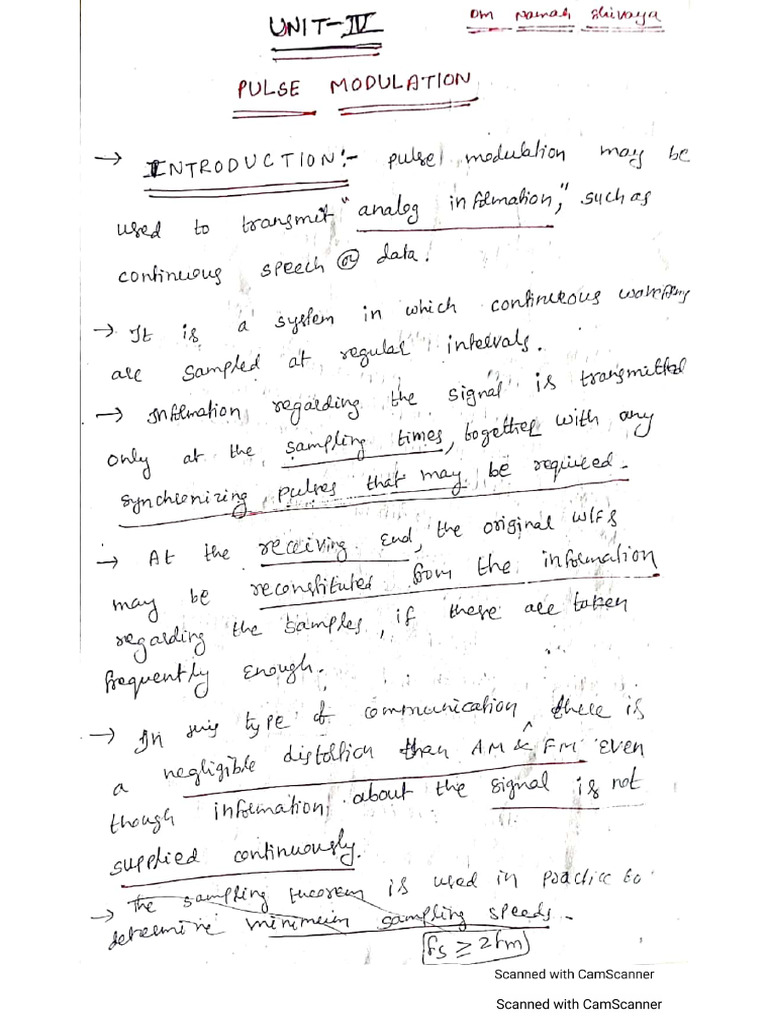 UNIT-IV
Om Namah Shivaya
PULSE MODULATION
→ INTRODUCTION:- pulse modulation may be
used to transmit "analog information," such as
continuous speech or data.
→ It is a system in which continuous waveforms
are sampled at regular intervals.
→ Information regarding the signal is transmitted
only at the sampling times, together with any
synchronizing pulses that may be required.
→ At the receiving end, the original W/Fs
may be reconstituted from the information
regarding the samples, if these are taken
frequently enough.
→ In this type of communication there is
a negligible distortion than AM & FM even
though information about the signal is not
supplied continuously.
→ The sampling theorem is used in practice to
determine minimum sampling speeds.
fs ≥ 2fm
Scanned with CamScanner
Scanned with CamScanner